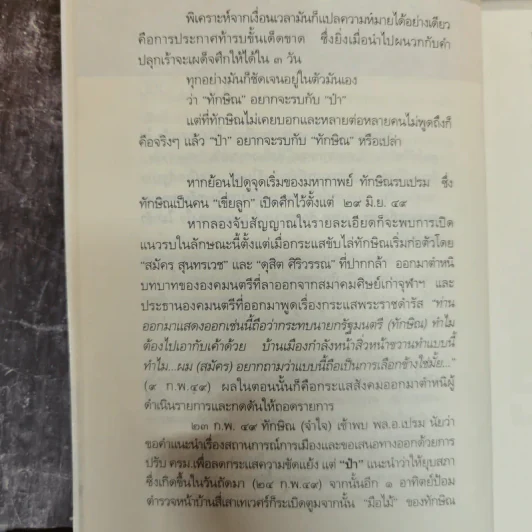 พิเคราะห์จากเงื่อนเวลามันก็แปลความหมายได้อย่างเดียว
คือการประกาศท้ารบขั้นเด็ดขาด ซึ่งยิ่งเมื่อนำไปผนวกกับคำ
ปลุกเร้าจะเผด็จศึกให้ได้ใน ๓ วัน
ทุกอย่างมันก็ชัดเจนอยู่ในตัวมันเอง
ว่า “ทักษิณ” อยากจะรบกับ “ป๋า”
แต่ที่ทักษิณไม่เคยบอกและหลายต่อหลายคนไม่พูดถึงก็
คือจริงๆ แล้ว “ป๋า” อยากจะรบกับ “ทักษิณ” หรือเปล่า
หากย้อนไปดูจุดเริ่มของมหากาพย์ ทักษิณรบเปรม ซึ่ง
ทักษิณเป็นคน “เขี่ยลูก” เปิดศึกไว้ตั้งแต่ ๒๙ มิ.ย. ๔๙
หากลองจับสัญญาณในรายละเอียดก็จะพบการเปิด
แนวรบในลักษณะนี้ตั้งแต่เมื่อกระแสขับไล่ทักษิณเริ่มก่อตัวโดย
“สมัคร สุนทรเวช” และ “ดุสิต ศิริวรรณ” ที่ปากกล้า ออกมาตำหนิ
บทบาทขององคมนตรีที่ลาออกจากสมาคมศิษย์เก่าจุฬาฯ และ
ประธานองคมนตรีที่ออกมาพูดเรื่องกระแสพระราชดำรัส “ท่าน
ออกมาแสดงออกเช่นนี้ถือว่ากระทบนายกรัฐมนตรี (ทักษิณ) ทำไม
ต้องไปเอากับเค้าด้วย บ้านเมืองกำลังหน้าสิ่วหน้าขวานทำแบบนี้
ทำไม...ผม (สมัคร) อยากถามว่าแบบนี้ถือเป็นการเลือกข้างใช่มั้ย...”
(๙ ก.พ.๔๙) ผลในตอนนั้นก็คือกระแสสังคมออกมาตำหนิผู้
ดำเนินรายการและกดดันให้ถอดรายการ
๒๓ ก.พ. ๔๙ ทักษิณ (จำใจ) เข้าพบ พล.อ.เปรม นัยว่า
ขอคำแนะนำเรื่องสถานการณ์การเมืองและขอเสนอทางออกด้วยการ
ปรับ ครม.เพื่อลดกระแสความขัดแย้ง แต่ “ป๋า” แนะนำว่าให้ยุบสภา
ซึ่งเกิดขึ้นในวันถัดมา (๒๔ ก.พ.๔๙) จากนั้นอีก ๑ อาทิตย์ป้อม
ตำรวจหน้าบ้านสี่เสาเทเวศร์ก็ระเบิดตูมจากนั้น “มือไม้” ของทักษิณ